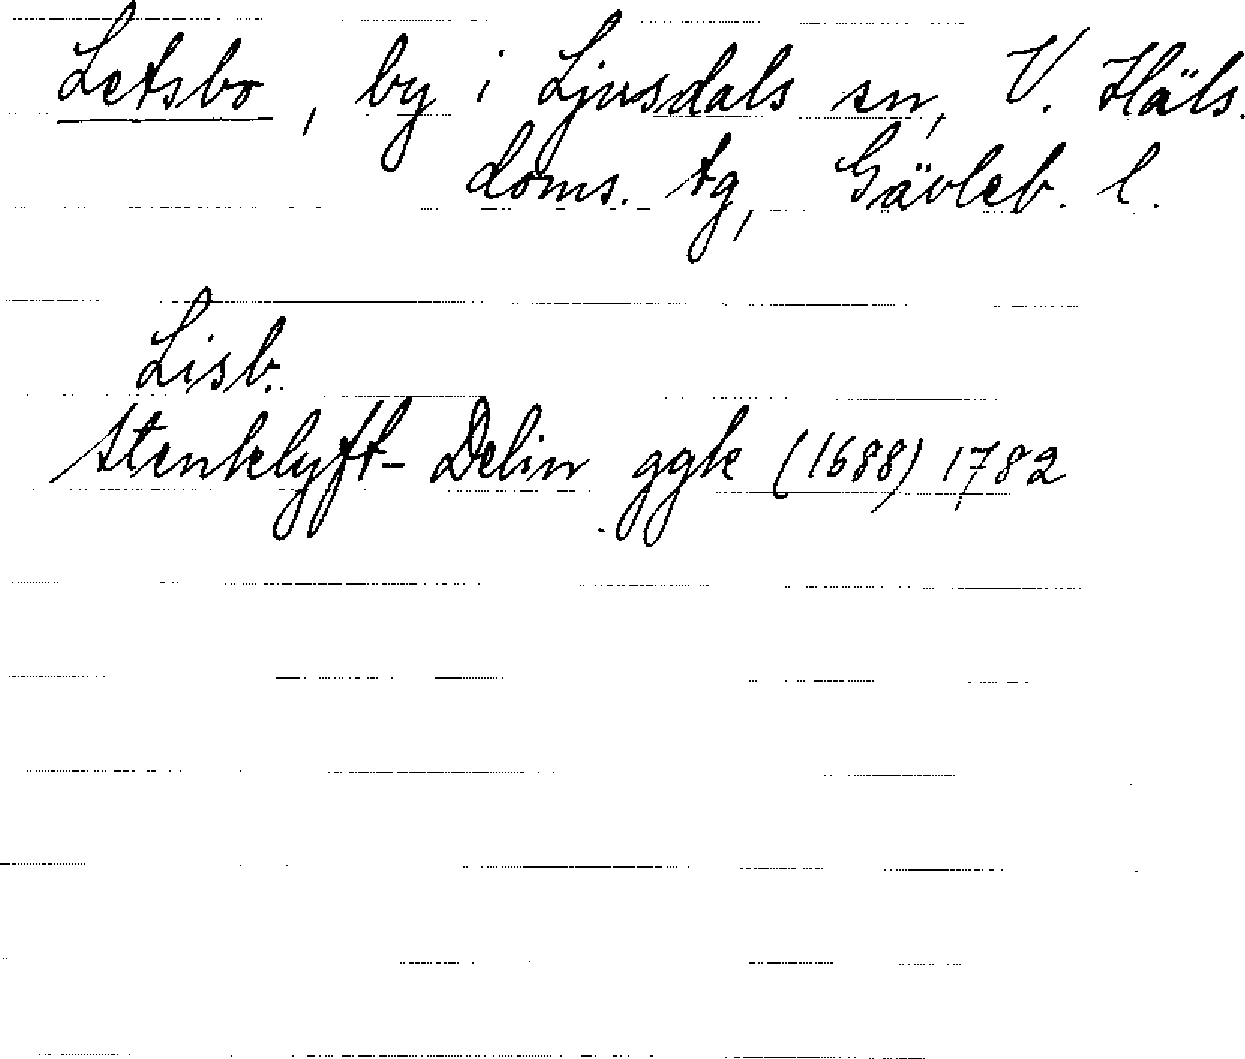 Letsbo, by i Ljusdals sn, V. Häls.
doms. tg, Gävleb. l.
Lisb.
Stenklyft- Delin ggk (1688) 1782